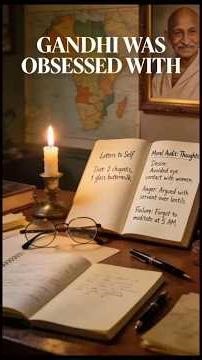 GANDHI WAS
OBSESSED WITH
Letters to Self
Diet: 2 chapatis,
1 glass buttermilk,
Moral Audit: Thoughts
Desire:
Avoided eye
contact with women.
Anger: Argued with
servant over lentils.
Failure: Forgot to
meditate at 5 AM